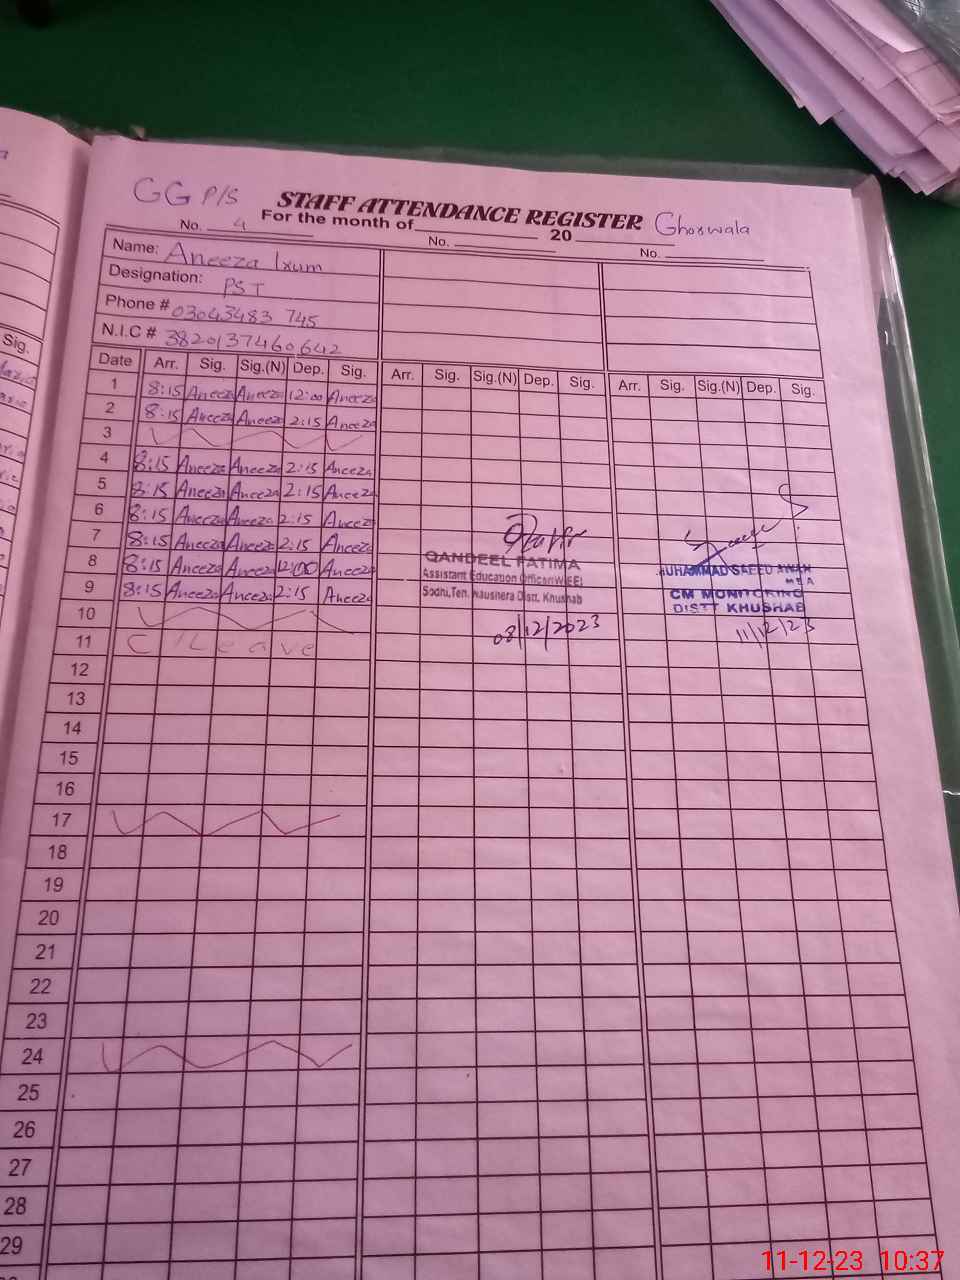 GG P/S STAFF ATTENDANCE REGISTER Ghoswala
For the month of 20
No. 4 No. No.
Name: Aneeza Ixum
Designation: PST
Phone # 03043483 745
N.I.C # 3820137460642
Date Arr. Sig. Sig.(N) Dep. Sig. Arr. Sig. Sig.(N) Dep. Sig. Arr. Sig. Sig.(N) Dep. Sig.
1 8:15 Aneeza Aneeza 12:00 Aneeza
2 8:15 Aneeza Aneeza 2:15 Aneeza
3
4 8:15 Aneeza Aneeza 2:15 Aneeza
5 8:15 Aneeza Aneeza 2:15 Aneeza
6 8:15 Aneeza Aneeza 2:15 Aneeza
7 8:15 Aneeza Aneeza 2:15 Aneeza
8 8:15 Aneeza Aneeza 12:00 Aneeza
9 8:15 Aneeza Aneeza 2:15 Aneeza
10
11 C/Leave
12
13
14
15
16
17
18
19
20
21
22
23
24
25
26
27
28
29
QANDEEL FATIMA
Assistant Education Officer(W-EE)
Sodhi,Teh. Naushera Distt. Khushab
08/12/2023
MUHAMMAD SAEED AWAN
MEA
CM MONITORING
DISTT KHUSHAB
11/12/23
Sig.
11-12-23 10:37